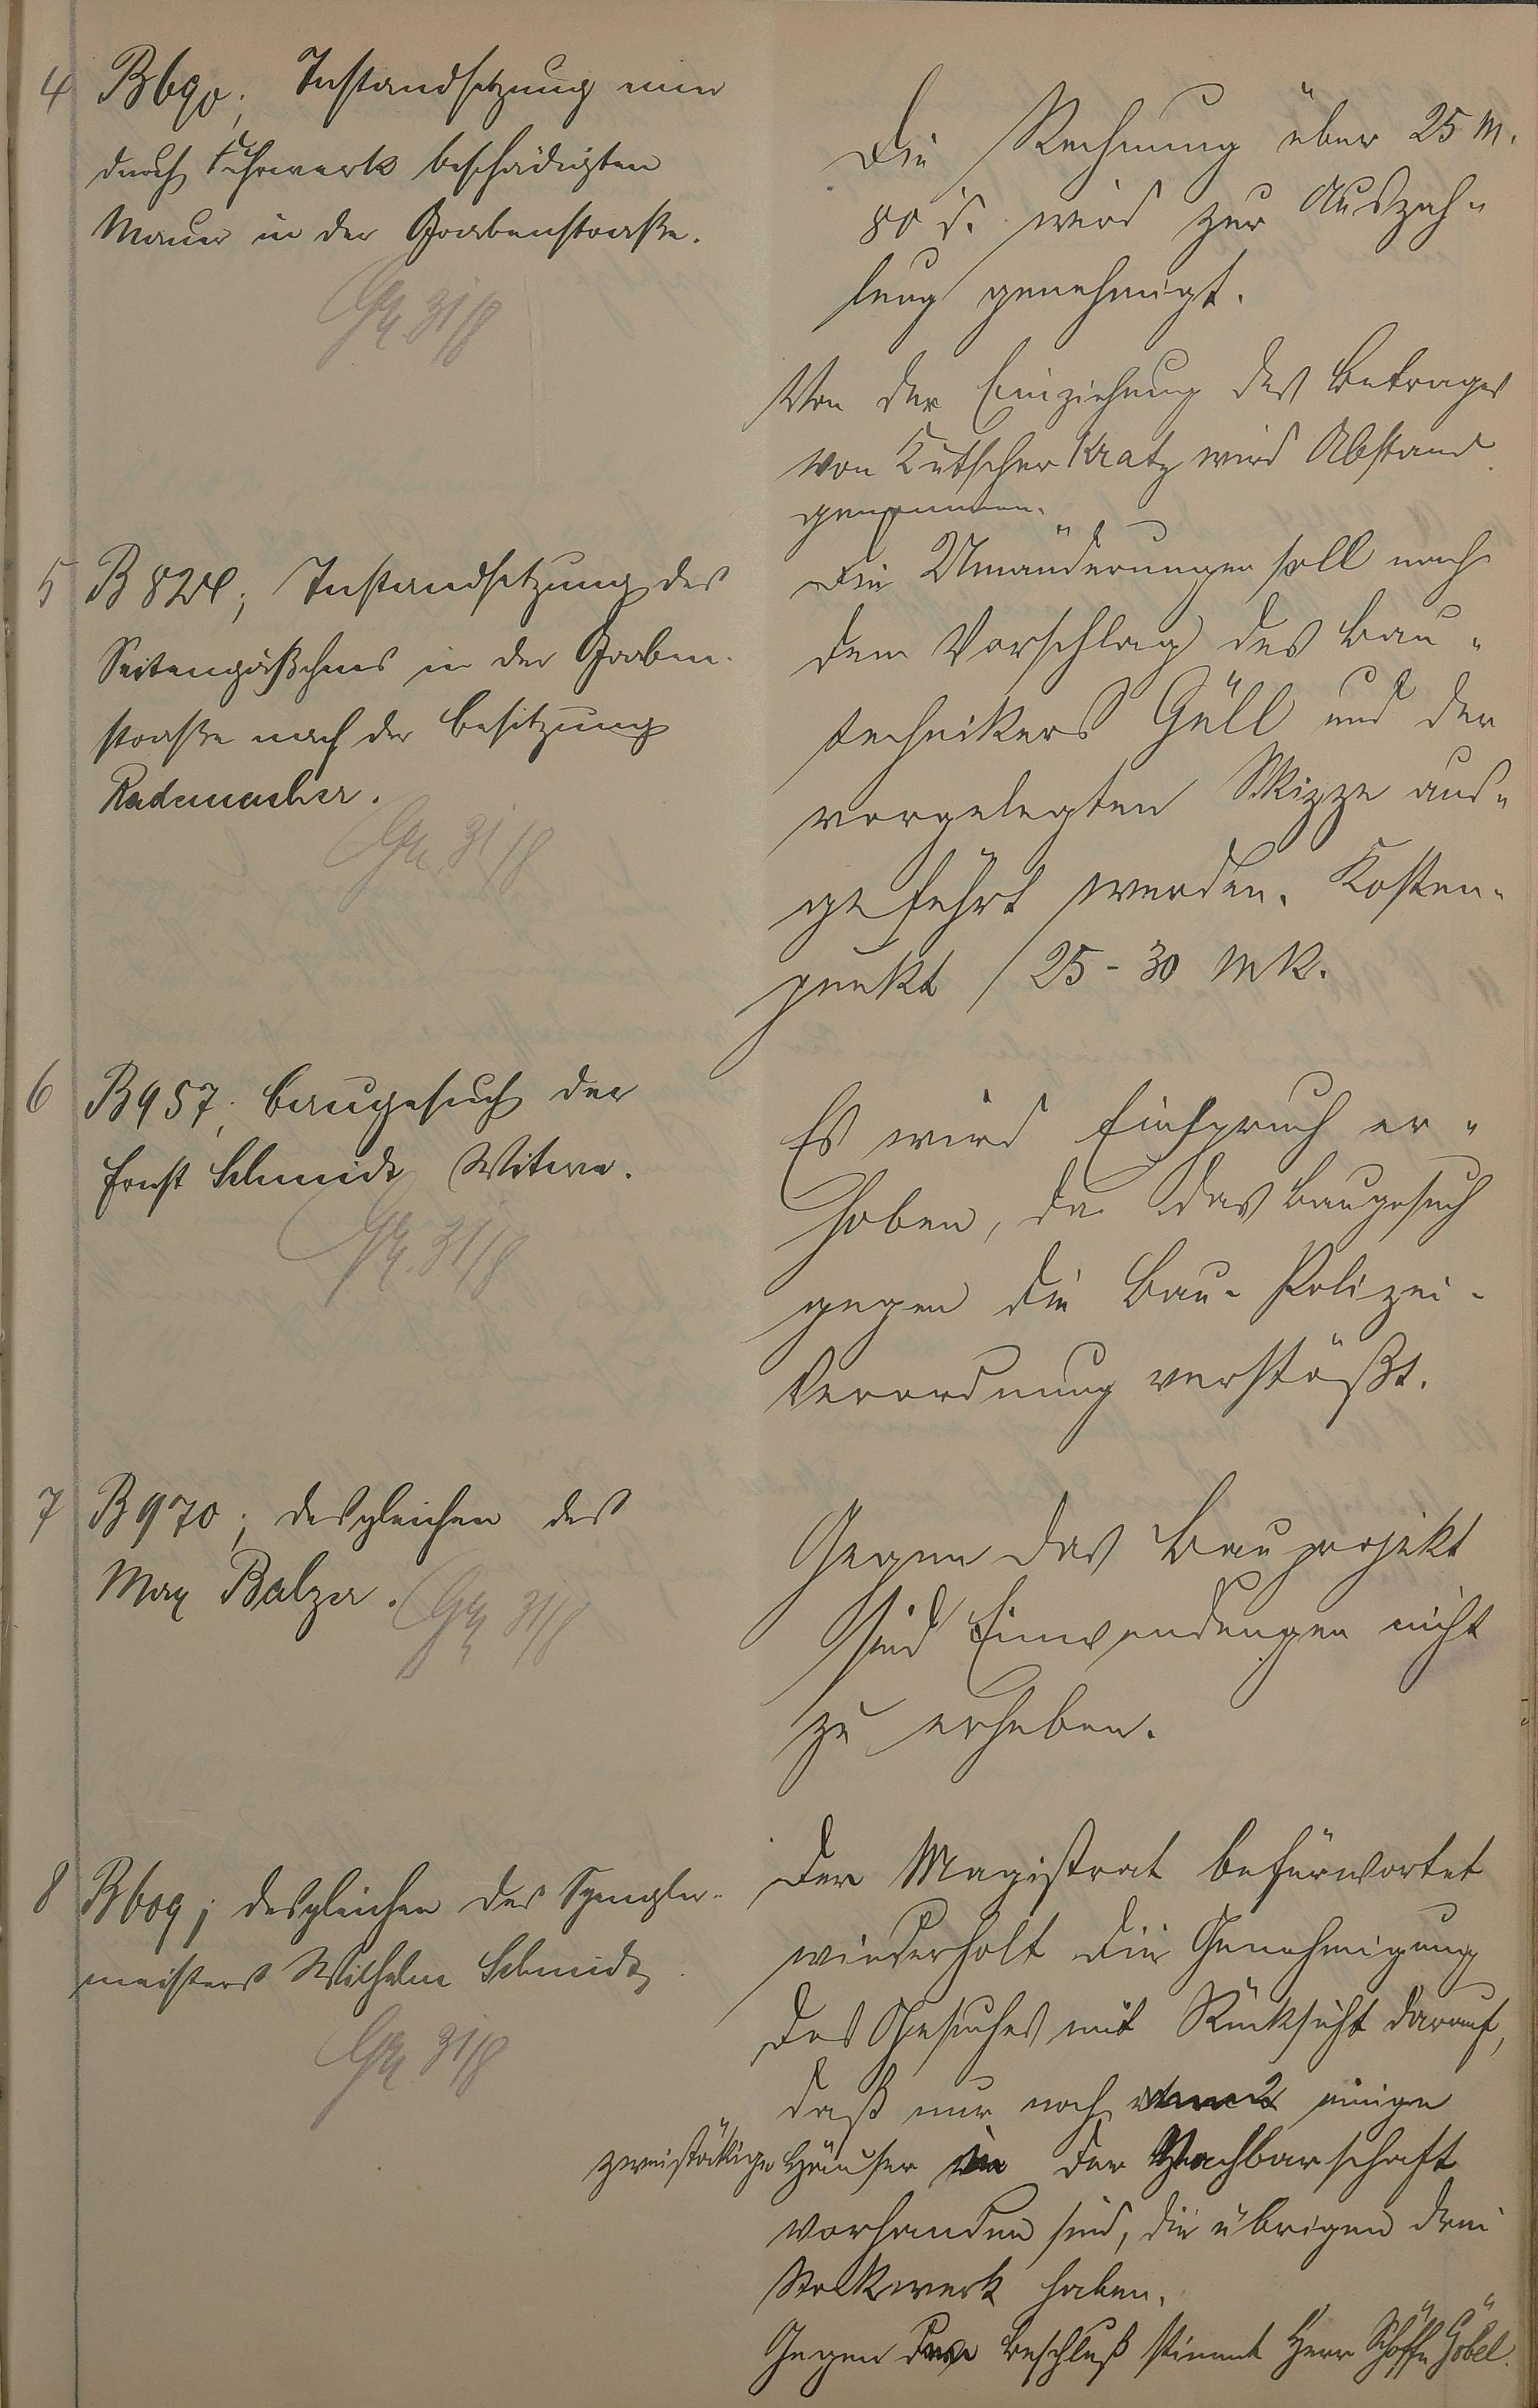 4 B 690; Instandsetzung einer
durch Fuhrwerk beschädigten
Mauer in der Grabenstraße.
31/8
Die Rechnung über 25 M.
80 d. wird zur Auszah-
lung genehmigt.
Von der Einziehung des Betrages
von Kutscher Kratz wird Abstand
genommen.
5 B 824; Instandsetzung des
Seitengäßchens in der Graben-
straße nach der Besitzung
Rademacher.
31/8
Die Umänderungen soll nach
dem Vorschlag des Bau-
technikers Güll und der
vorgelegten Skizze aus-
geführt werden. Kosten-
punkt 25-30 MK.
6 B 957; Baugesuch der
Ernst Schmidt Witwe.
31/8
Es wird Einspruch er-
hoben, da das Baugesuch
gegen die Bau-Polizei-
Verordnung verstößt.
7 B 970; desgleichen des
Max Balzer.
31/8
Gegen das Bauprojekt
sind Einwendungen nicht
zu erheben.
8 B 609; desgleichen des Spengler-
meisters Wilhelm Schmidt
31/8
Der Magistrat befürwortet
wiederholt die Genehmigung
des Gesuches mit Rücksicht darauf,
daß nur noch einige
zweistöckige Häuser in der Nachbarschaft
vorhanden sind, die übrigen drei
Stockwerk haben.
Gegen den Beschluß stimmt Herr Schöffe Göbel.